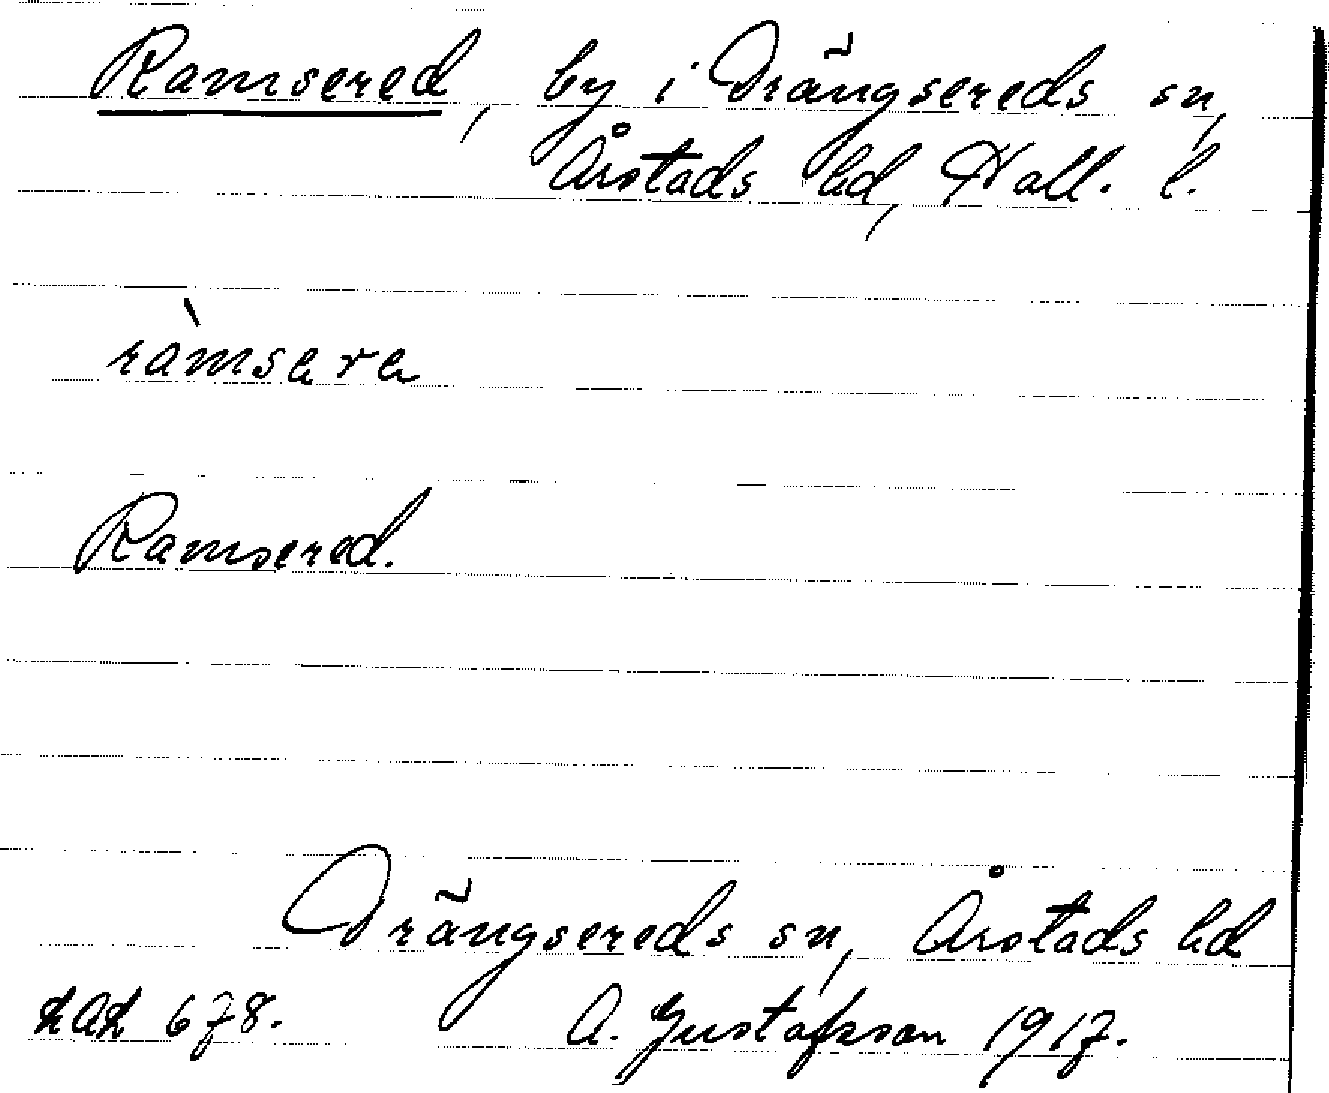 Ramsered, by i Drängsereds sn,
Årstads hd, Hall. l.
ràmsere
Ramsered.
Drängsereds sn, Årstads hd
678. A. Gustafsson 1917.